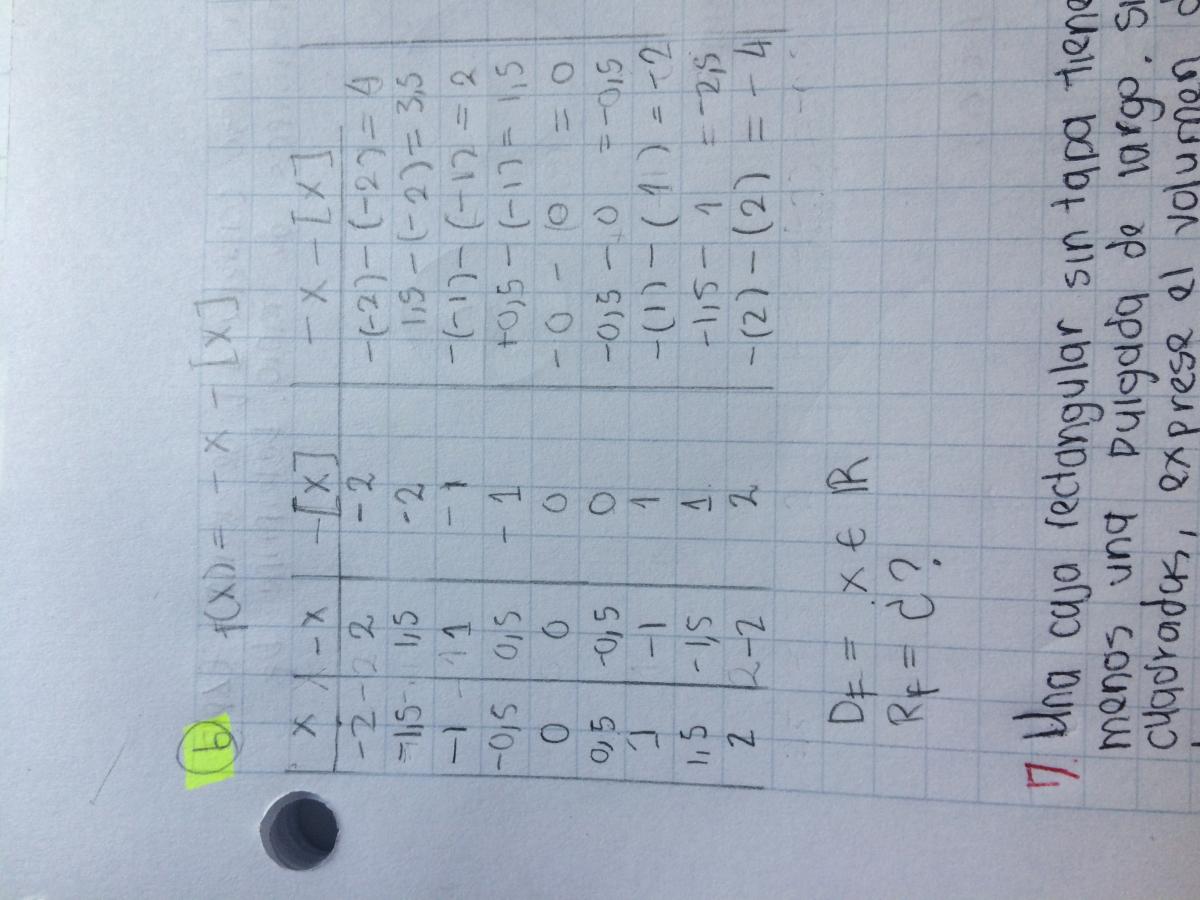 b f(x) = - x - [x]
x -x -[x] - x - [x]
-2 2 -2 -(-2)-(-2)= 4
-1,5 1,5 -2 1,5-(-2)= 3,5
-1 1 -1 -(-1)-(-1)= 2
-0,5 0,5 -1 +0,5-(-1)= 1,5
0 0 0 - 0 - 0 = 0
0,5 -0,5 0 -0,5 - 0 = -0,5
1 -1 1 -(1)-(1) = -2
1,5 -1,5 1 -1,5 - 1 = -2,5
2 -2 2 -(2)-(2) = -4
Df = x ∈ IR
Rf = ¿?
7. Una caja rectangular sin tapa tiene
menos una pulgada de largo. Si
cuadradas, exprese el volumen